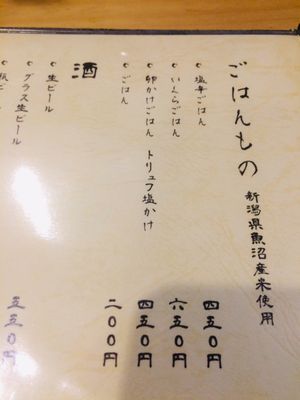 ごはんもの 新潟県魚沼産米使用
塩辛ごはん 四五〇円
いくらごはん 六五〇円
卵かけごはん トリュフ塩かけ 四五〇円
ごはん 二〇〇円
酒
生ビール 五五〇円
グラス生ビール